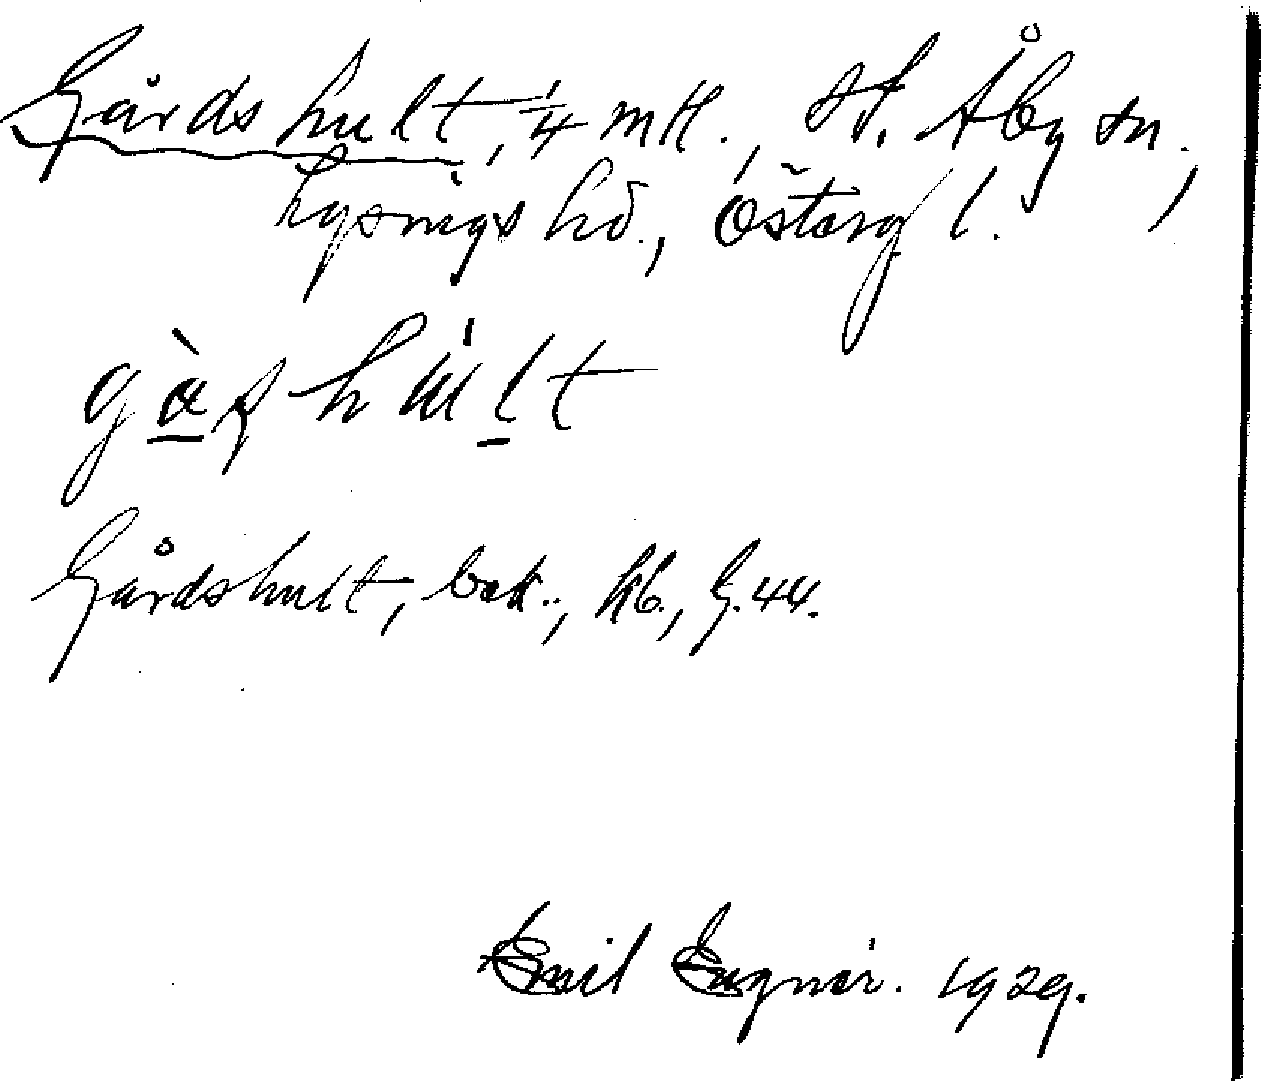 Gårdshult, 1/4 mtl., St. Åby sn.,
Lysings hd., Östergl.
gàʂhúlt
Gårdshult, bek., kb., G.44.
Emil Engner. 1929.